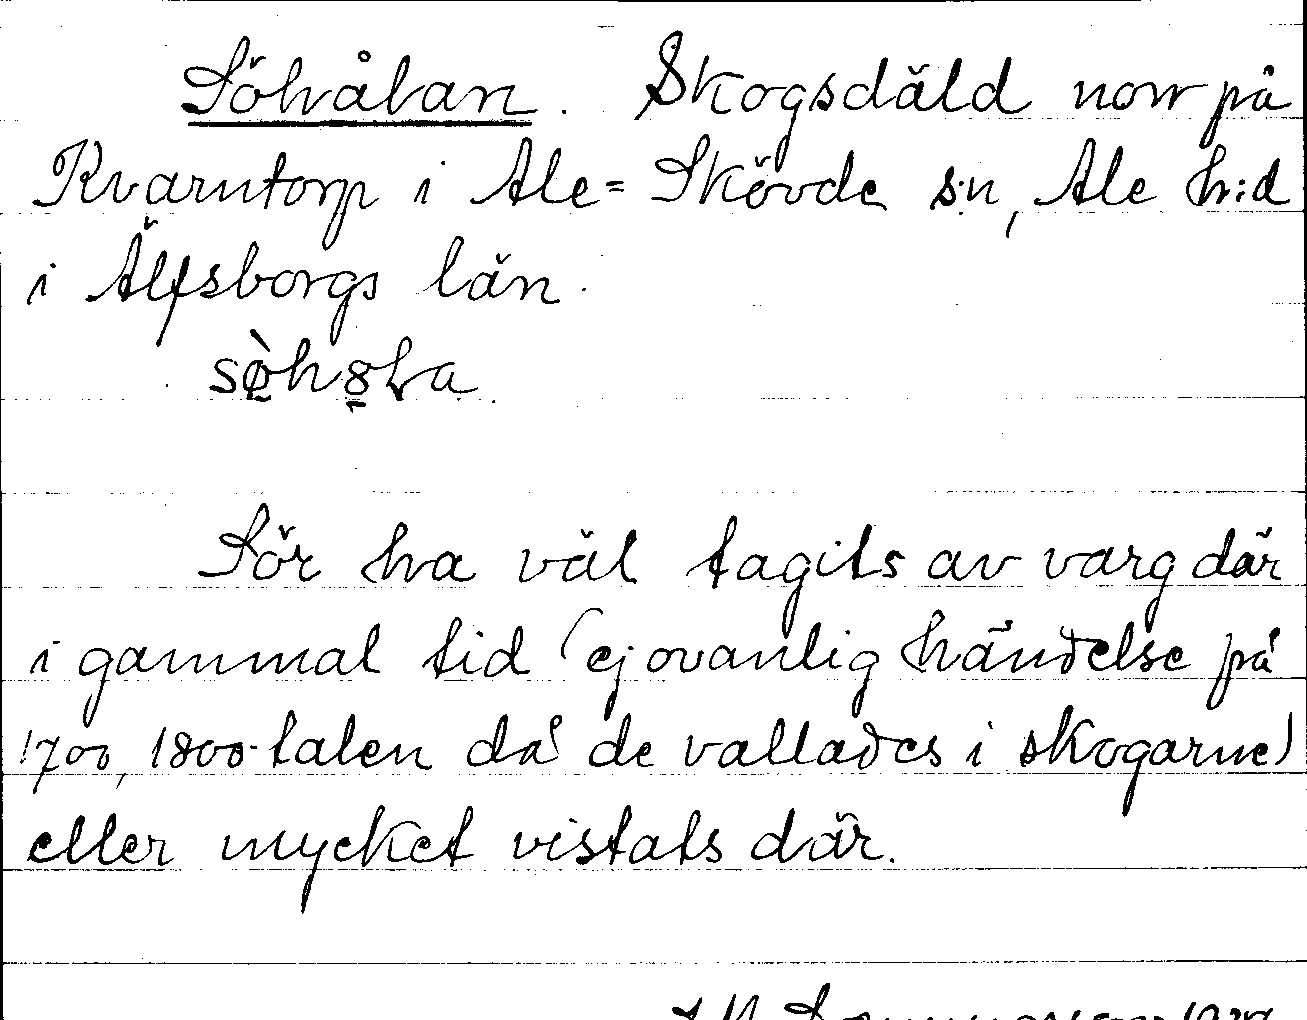 Söhålan. Skogsdäld norr på
Kvarntorp i Ale=Skövde s:n, Ale h:d
i Älfsborgs län.
Sör ha väl tagits av varg där
i gammal tid (ej ovanlig händelse på
1700, 1800-talen då de vallades i skogarne)
eller mycket vistats där.